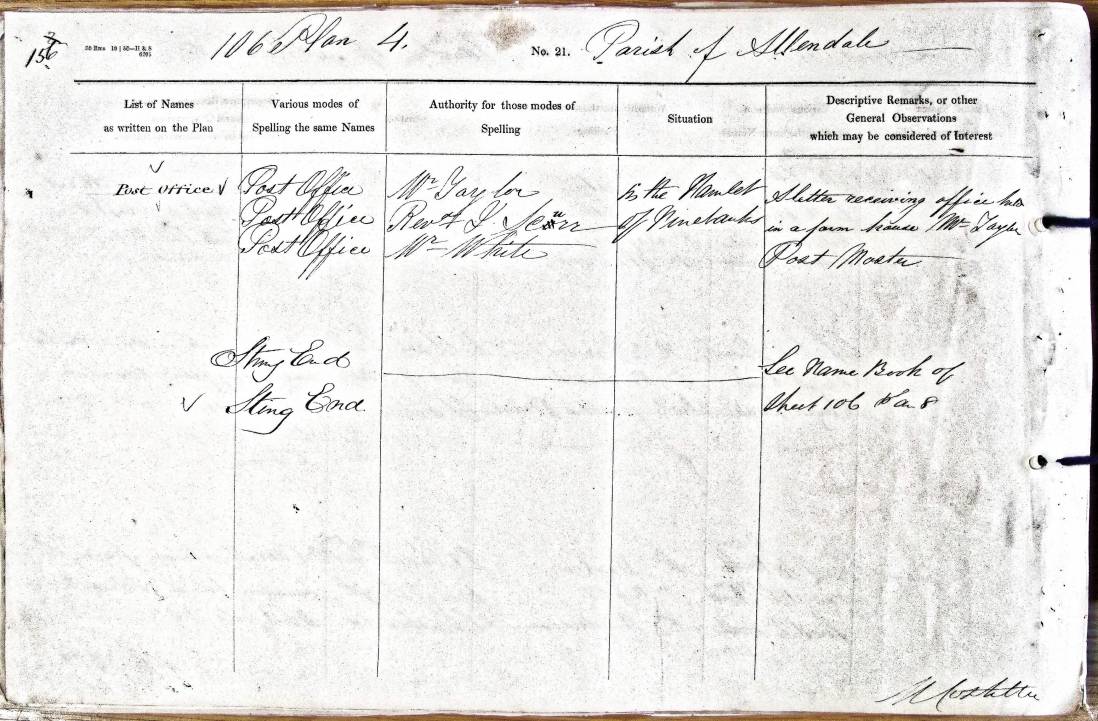 156
106 Plan 4. No. 21. Parish of Allendale
List of Names
as written on the Plan
Various modes of
Spelling the same Names
Authority for those modes of
Spelling
Situation
Descriptive Remarks, or other
General Observations
which may be considered of Interest
Post Office
Post Office
Post Office
Post Office
Mr Taylor
Revd J.
Mr White
In the Hamlet
of Ninebanks
A letter receiving office
in a farm house Mr Taylor
Post Master
Sting End
Sting End
See Name Book of
Sheet 106 8